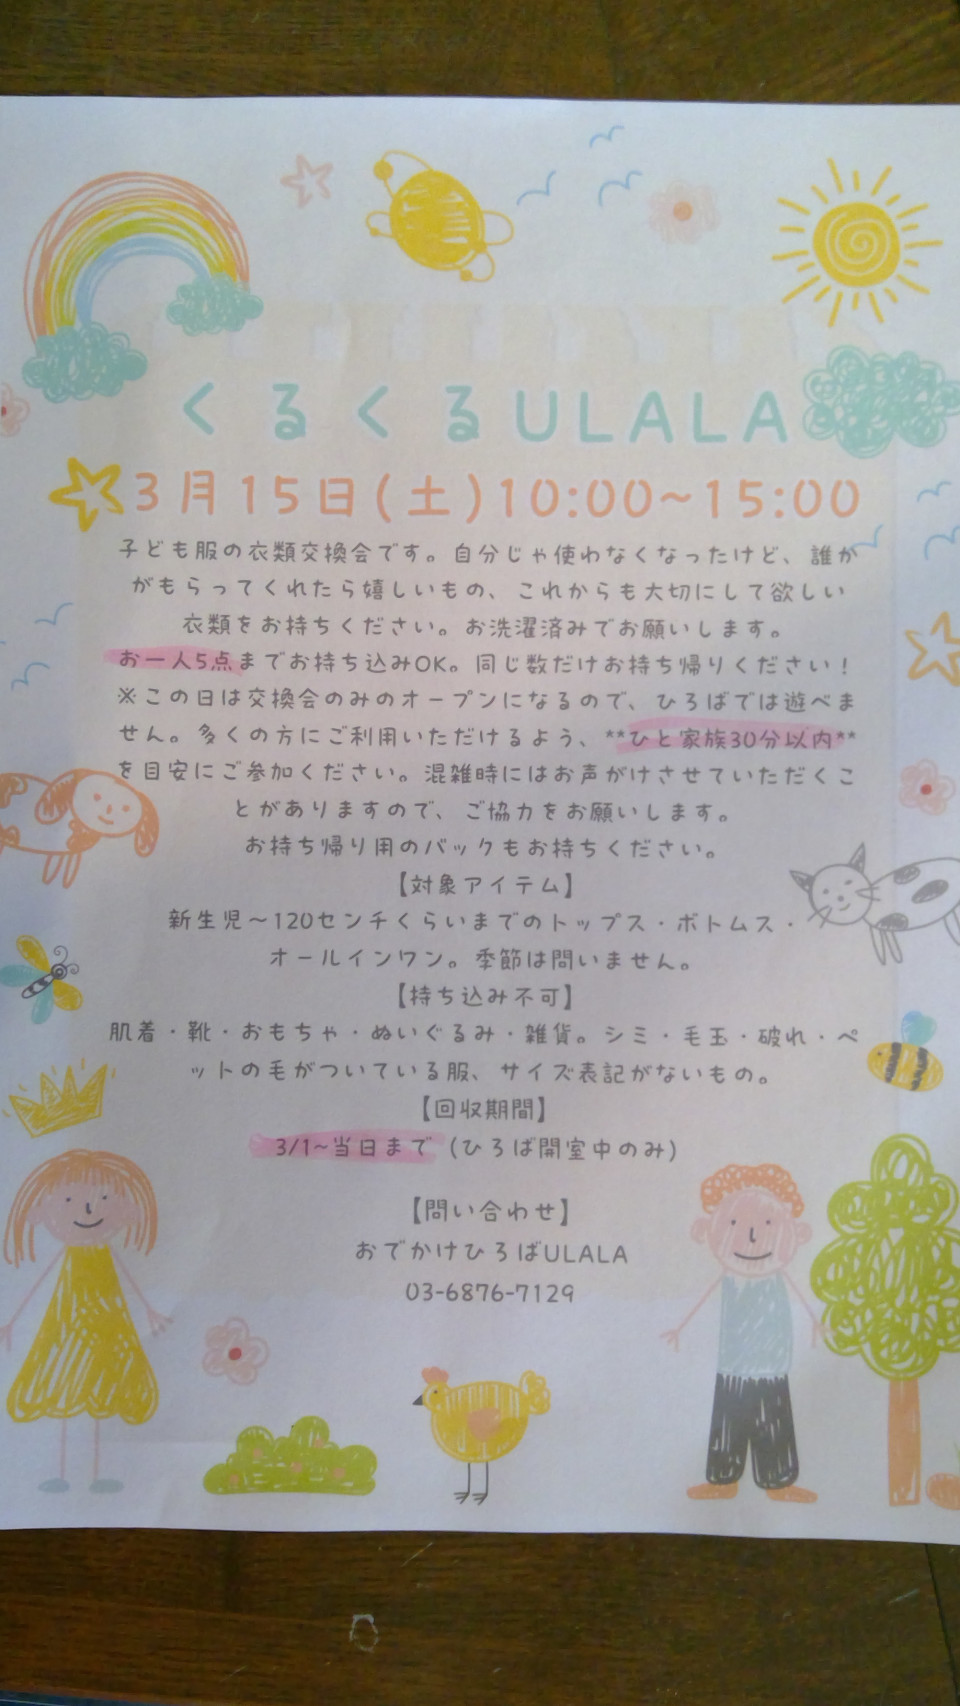 くるくるULALA
3月15日(土)10:00~15:00
子ども服の衣類交換会です。自分じゃ使わなくなったけど、誰か
がもらってくれたら嬉しいもの、これからも大切にして欲しい
衣類をお持ちください。お洗濯済みでお願いします。
お一人5点までお持ち込みOK。同じ数だけお持ち帰りください！
※この日は交換会のみのオープンになるので、ひろばでは遊べま
せん。多くの方にご利用いただけるよう、**ひと家族30分以内**
を目安にご参加ください。混雑時にはお声がけさせていただくこ
とがありますので、ご協力をお願いします。
お持ち帰り用のバックもお持ちください。
【対象アイテム】
新生児～120センチくらいまでのトップス・ボトムス・
オールインワン。季節は問いません。
【持ち込み不可】
肌着・靴・おもちゃ・ぬいぐるみ・雑貨。シミ・毛玉・破れ・ペ
ットの毛がついている服、サイズ表記がないもの。
【回収期間】
3/1~当日まで（ひろば開室中のみ）
【問い合わせ】
おでかけひろばULALA
03-6876-7129